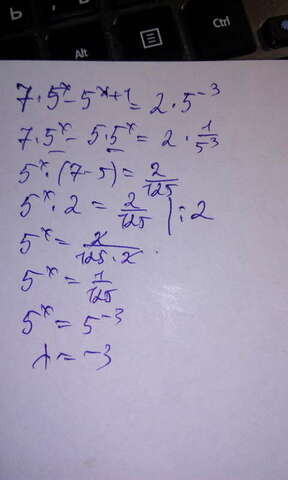 Alt
Ctrl
7·5ˣ-5ˣ⁺¹=2·5⁻³
7·5ˣ-5·5ˣ=2·1/5³
5ˣ·(7-5)=2/125
5ˣ·2=2/125 |:2
5ˣ=2/125·2
5ˣ=1/125
5ˣ=5⁻³
x=-3